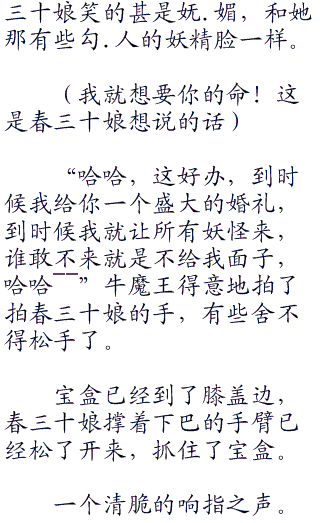 三十娘笑的甚是妩.媚，和她
那有些勾.人的妖精脸一样。
（我就想要你的命！这
是春三十娘想说的话）
“哈哈，这好办，到时
候我给你一个盛大的婚礼，
到时候我就让所有妖怪来，
谁敢不来就是不给我面子，
哈哈¯¯”牛魔王得意地拍了
拍春三十娘的手，有些舍不
得松手了。
宝盒已经到了膝盖边，
春三十娘撑着下巴的手臂已
经松了开来，抓住了宝盒。
一个清脆的响指之声。